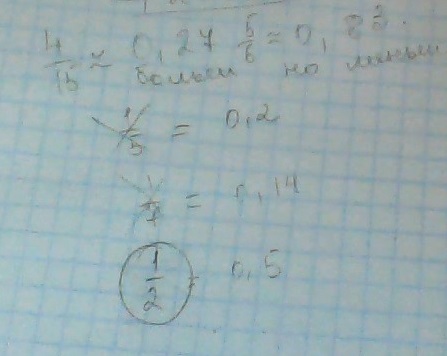 4/15 ≈ 0,27 5/6 ≈ 0,83.
больши но меньши
1/5 = 0,2
1/7 = 0,14
1/2 = 0,5